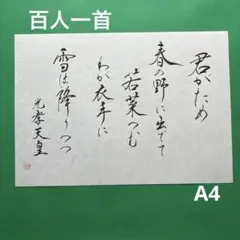 百人一首
君がため
春の野に出でて
若菜つむ
わが衣手に
雪は降りつつ
光孝天皇
A4